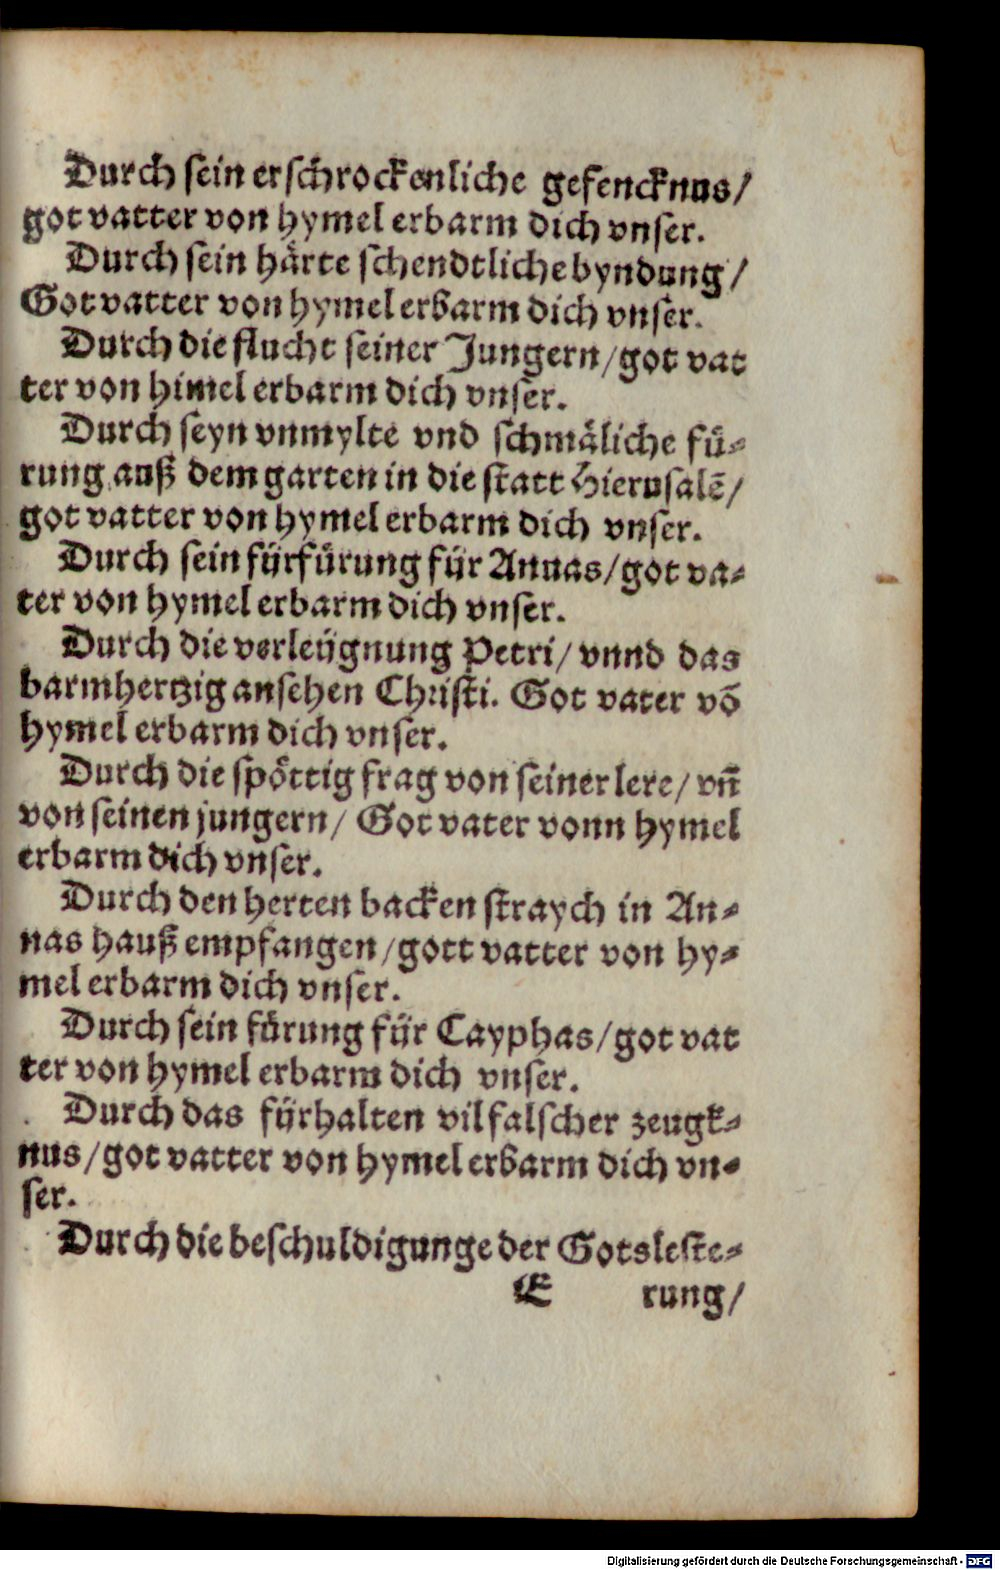 Durch sein erschrockenliche gefencknus/
got vatter von hymel erbarm dich vnser.
Durch sein härte schendtliche byndung/
Got vatter von hymel erbarm dich vnser.
Durch die flucht seiner Jungern/got vat
ter von himel erbarm dich vnser.
Durch seyn vnmylte vnd schmäliche fü-
rung auß dem garten in die statt Hierusalē/
got vatter von hymel erbarm dich vnser.
Durch sein fürfürung für Annas/got va-
ter von hymel erbarm dich vnser.
Durch die verleügnung Petri/ vnnd das
barmhertzig ansehen Christi. Got vater vō
hymel erbarm dich vnser.
Durch die spöttig frag von seiner lere/ vñ
von seinen jungern/ Got vater vonn hymel
erbarm dich vnser.
Durch den herten backen straych in An-
nas hauß empfangen/gott vatter von hy-
mel erbarm dich vnser.
Durch sein fürung für Cayphas/got vat
ter von hymel erbarm dich vnser.
Durch das fürhalten vil falscher zeugk-
nus/got vatter von hymel erbarm dich vn-
ser.
Durch die beschuldigunge der Gotsleste-
E rung/
Digitalisierung gefördert durch die Deutsche Forschungsgemeinschaft - DFG